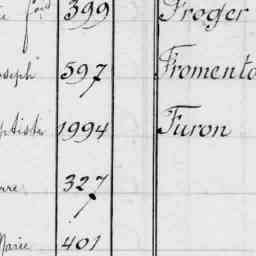 399 Froger
oseph 597 Fromento
ptiste 1994 Furon
rre 327
Marie 401